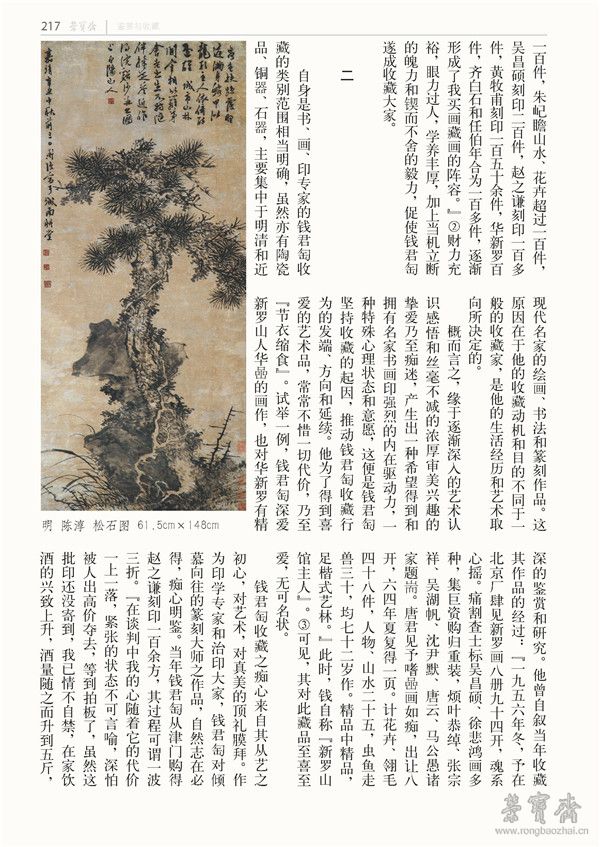 217
荣宝斋
鉴赏与收藏
一百件，朱屺瞻山水、花卉超过一百件，
吴昌硕刻印二百件，赵之谦刻印一百多
件，黄牧甫刻印一百五十余件，华新罗百
件，齐白石和任伯年合为一百多件，逐渐
形成了我买画藏画的阵容。』②财力充
裕，眼力过人，学养丰厚，加上当机立断
的魄力和锲而不舍的毅力，促使钱君匋
遂成收藏大家。
二
自身是书、画、印专家的钱君匋收
藏的类别范围相当明确，虽然亦有陶瓷
品、铜器、石器，主要集中于明清和近
现代名家的绘画、书法和篆刻作品。这
原因在于他的收藏动机和目的不同于一
般的收藏家，是他的生活经历和艺术取
向所决定的。
概而言之，缘于逐渐深入的艺术认
识感悟和丝毫不减的浓厚审美兴趣的
挚爱乃至痴迷，产生出一种希望得到和
拥有名家书画印强烈的内在驱动力，一
种特殊心理状态和意愿，这便是钱君匋
坚持收藏的起因，推动钱君匋收藏行
为的发端、方向和延续。他为了得到喜
爱的艺术品，常常不惜一切代价，乃至
『节衣缩食』。试举一例，钱君匋深爱
新罗山人华嵒的画作，也对华新罗有精
明 陈淳 松石图 61.5cm×148cm
深的鉴赏和研究。他曾自叙当年收藏
其作品的经过：『一九五六年冬，予在
北京厂肆见新罗画八册九十四开，魂系
心摇。痛割查士标吴昌硕、徐悲鸿画多
种，集巨资购归重装，烦叶恭绰、张宗
祥、吴湖帆、沈尹默、唐云、马公愚诸
家题耑。唐君见予嗜嵒画如痴，出让八
开，六四年夏复得一页。计花卉、翎毛
四十八件，人物、山水二十五，虫鱼走
兽三十，均七十二岁作。精品中精品，
足楷式艺林。』此时，钱自称『新罗山
馆主人』。③可见，其对此藏品至喜至
爱，无可名状。
钱君匋收藏之痴心来自其从艺之
初心，对艺术，对真美的顶礼膜拜。作
为印学专家和治印大家，钱君匋对倾
慕向往的篆刻大师之作品，自然志在必
得，痴心明鉴。当年钱君匋从津门购得
赵之谦刻印一百余方，其过程可谓一波
三折。『在谈判中我的心随着它的代价
一上一落，紧张的状态不可言喻，深怕
被人出高价夺去，等到拍板了，虽然这
批印还没寄到，我已情不自禁，在家饮
酒的兴致上升，酒量随之而升到五斤，
荣宝斋
www.rongbaozhai.cn